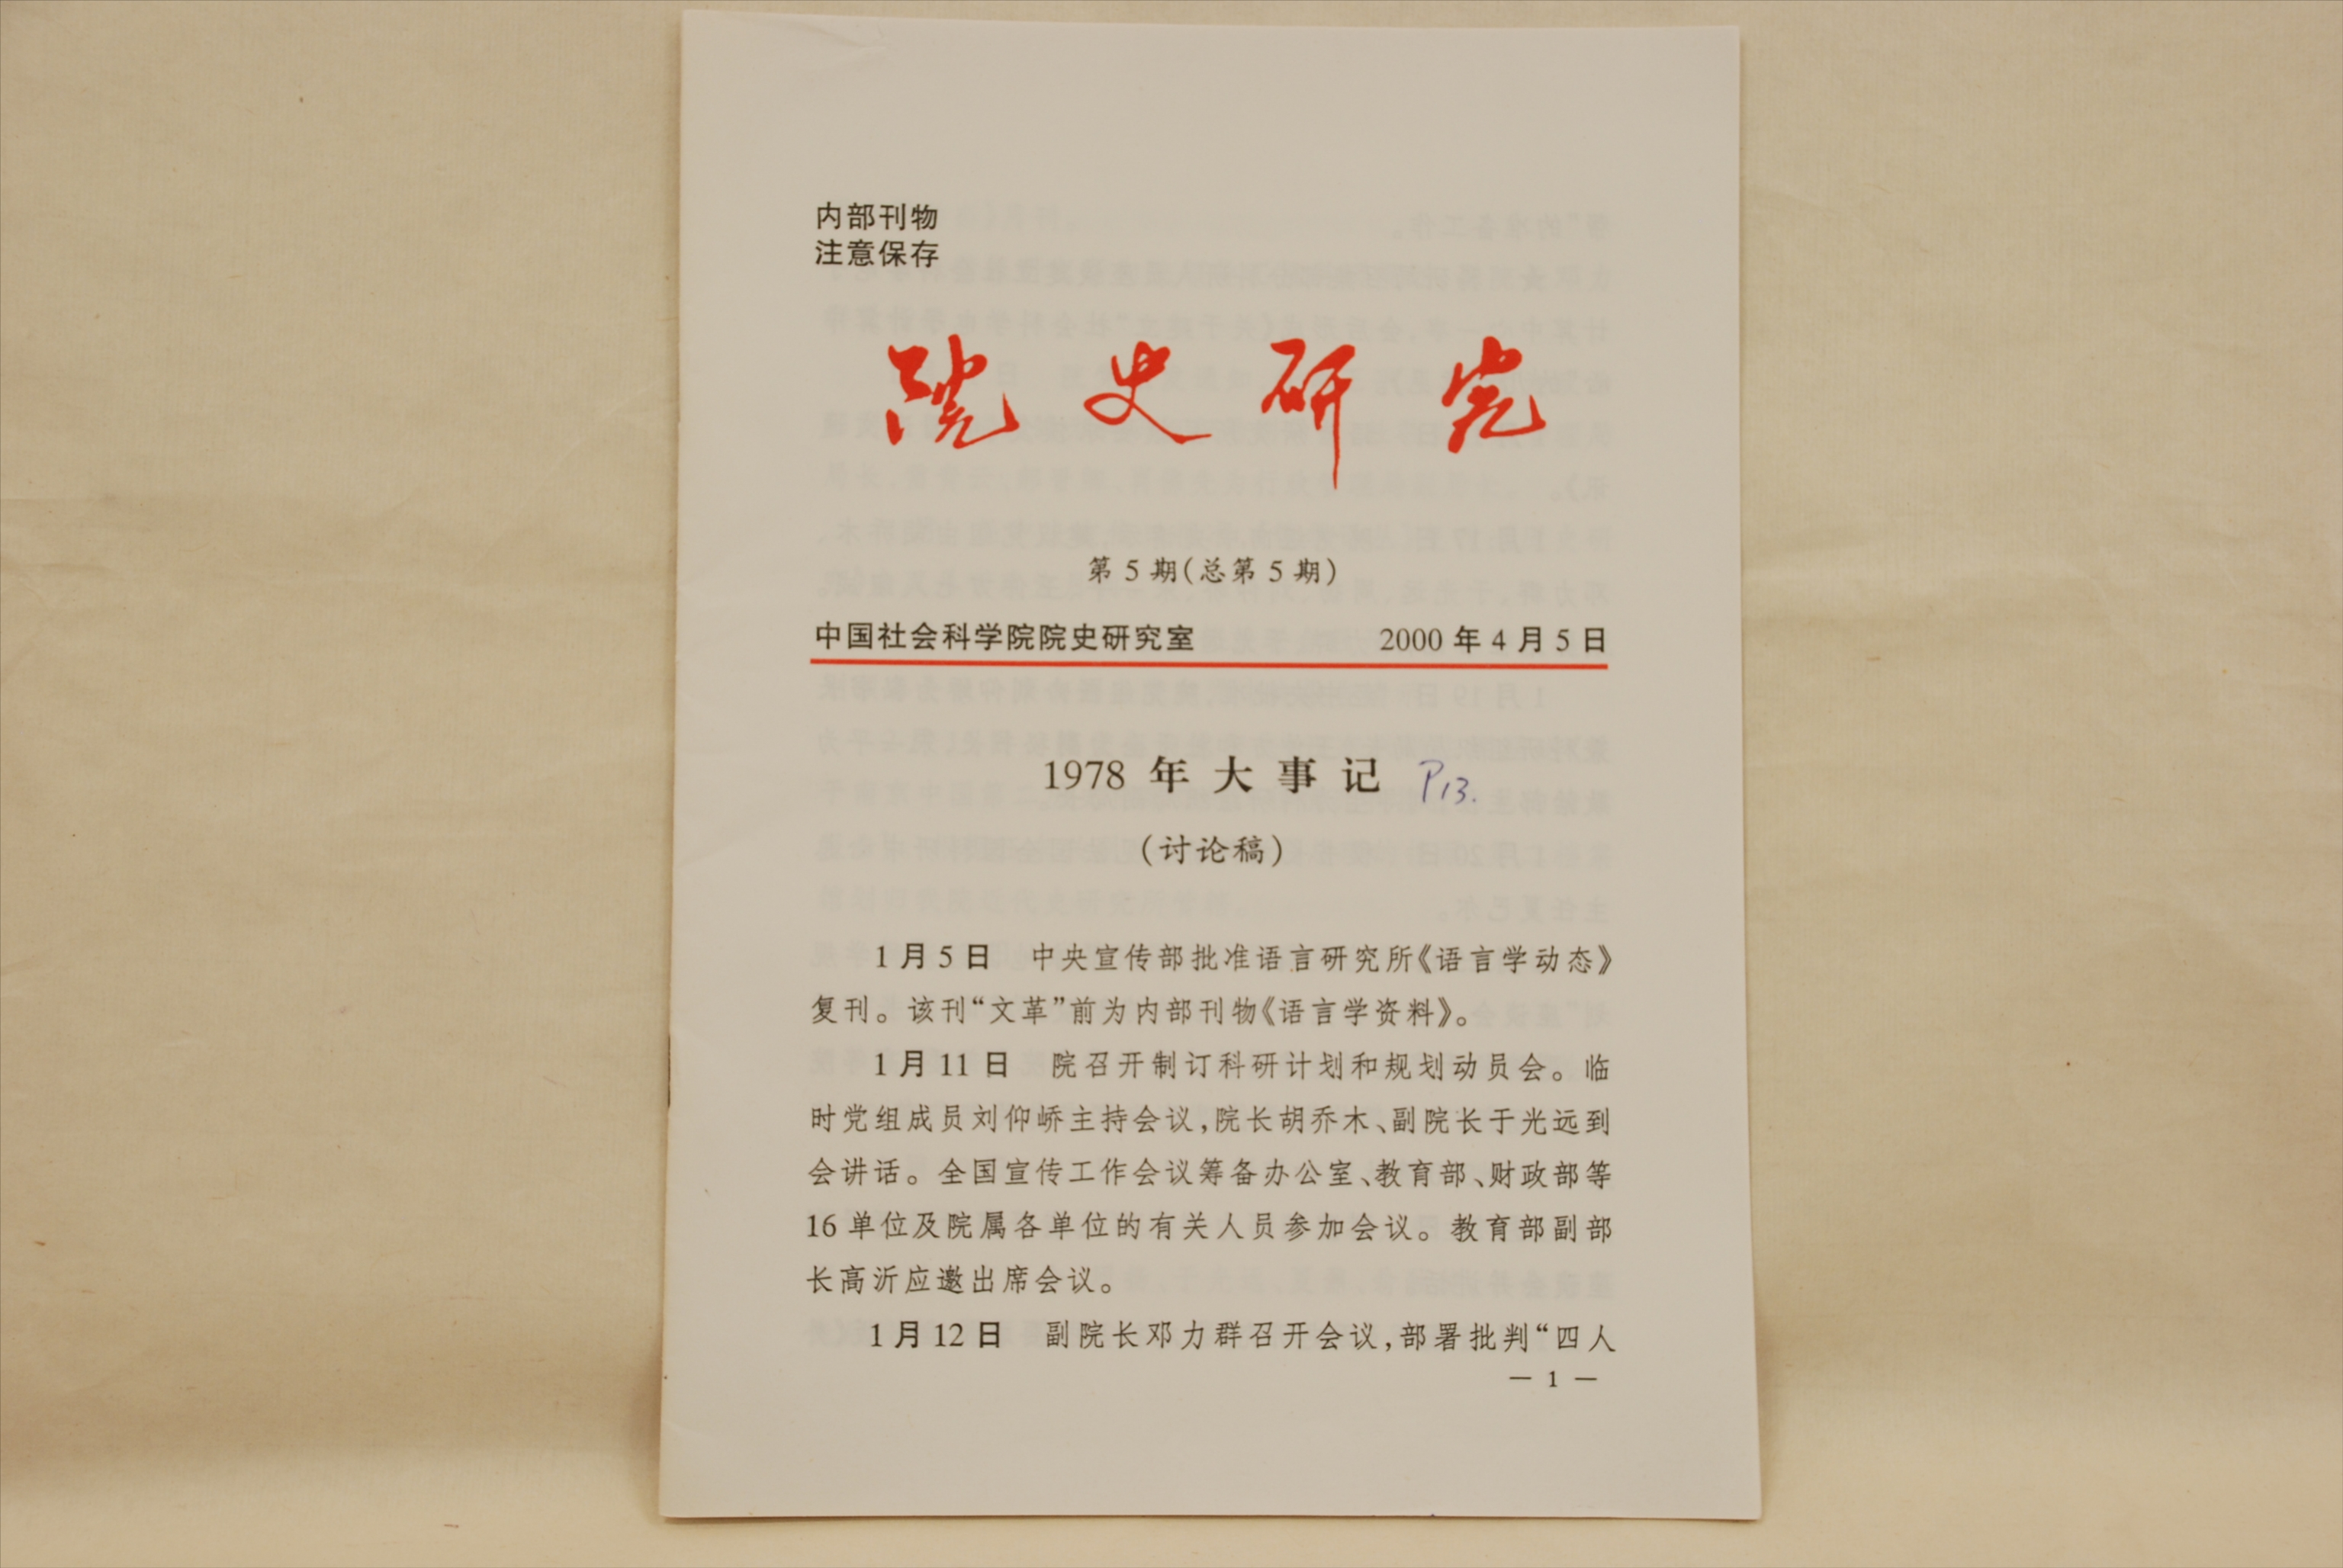 内部刊物
注意保存
院史研究
第5期(总第5期)
中国社会科学院院史研究室 2000年4月5日
1978年大事记 P13.
(讨论稿)
1月5日 中央宣传部批准语言研究所《语言学动态》
复刊。该刊“文革”前为内部刊物《语言学资料》。
1月11日 院召开制订科研计划和规划动员会。临
时党组成员刘仰峤主持会议,院长胡乔木、副院长于光远到
会讲话。全国宣传工作会议筹备办公室、教育部、财政部等
16单位及院属各单位的有关人员参加会议。教育部副部
长高沂应邀出席会议。
1月12日 副院长邓力群召开会议,部署批判“四人
— 1 —